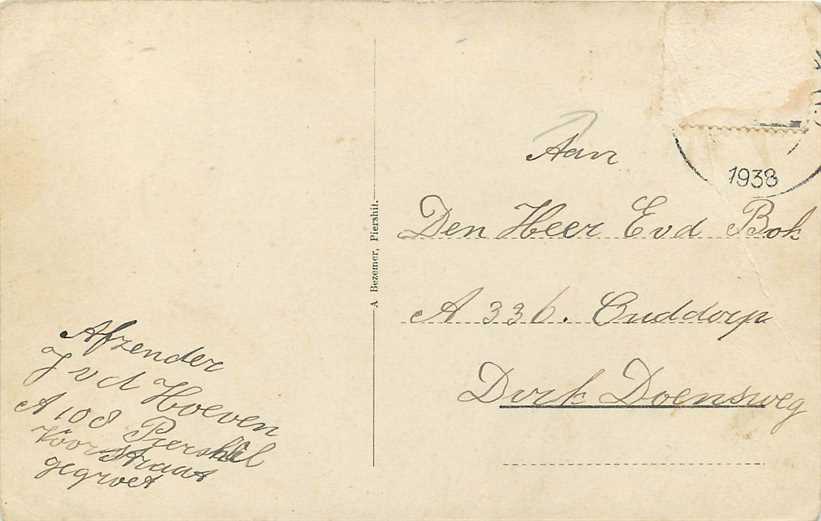 Afzender
J v d Hoeven
A 108 Piershil
Voorstraat
gegroet
A Bezemer, Piershil.
1938
Aan
Den Heer E v d Bok
A 336. Ouddorp
Dirk Doensweg